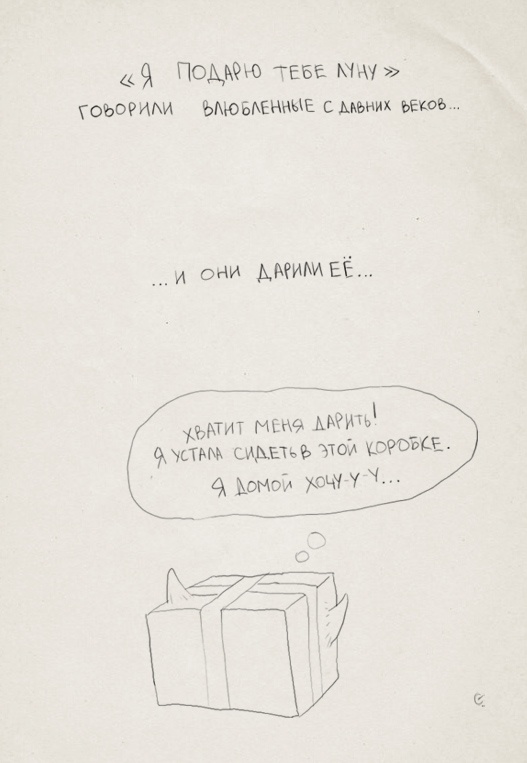 «Я ПОДАРЮ ТЕБЕ ЛУНУ»
ГОВОРИЛИ ВЛЮБЛЕННЫЕ С ДАВНИХ ВЕКОВ...
...И ОНИ ДАРИЛИ ЕЁ...
ХВАТИТ МЕНЯ ДАРИТЬ!
Я УСТАЛА СИДЕТЬ В ЭТОЙ КОРОБКЕ.
Я ДОМОЙ ХОЧУ-У-У...